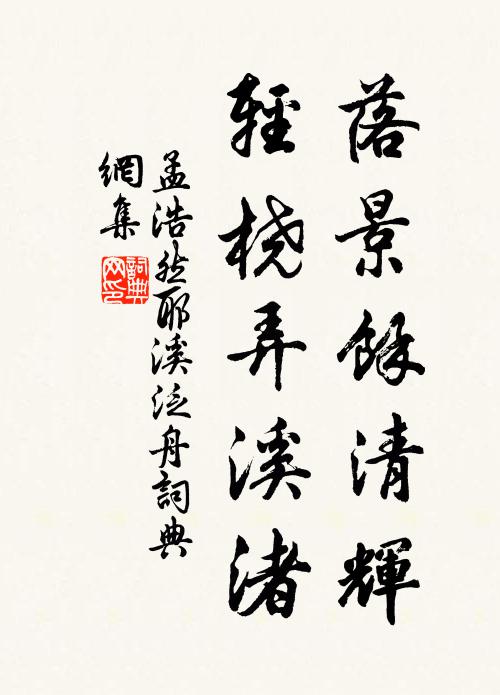 落景餘清輝
輕桡弄溪渚
孟浩然耶溪泛舟詞典
網集
詞典
网印